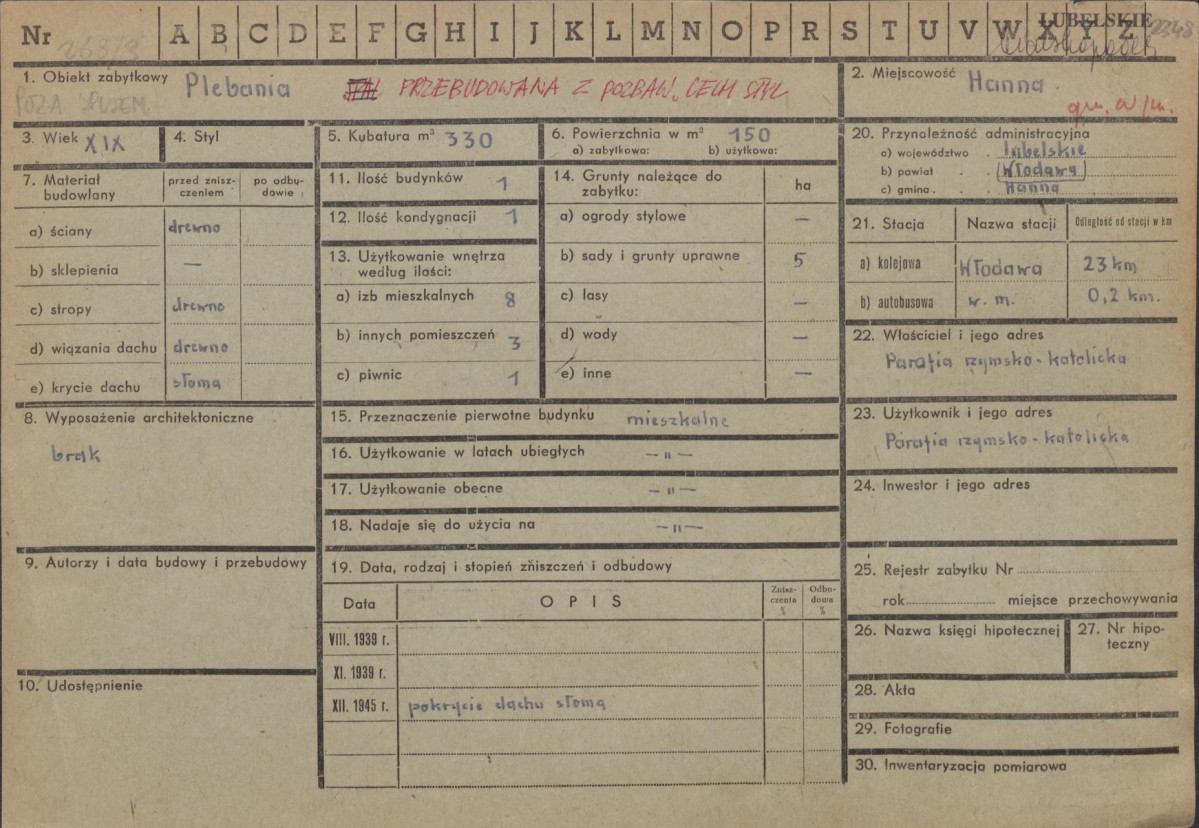 Nr A B C D E F G H I J K L M N O P R S T U V W X Y Z
LUBELSKIE
1. Obiekt zabytkowy Plebania PRZEBUDOWANA Z POZBAW. CECH STYL
POZA SPISEM
2. Miejscowość Hanna
gm. w/m.
3. Wiek XIX
4. Styl
5. Kubatura m³ 330
6. Powierzchnia w m² 150
a) zabytkowa: b) użytkowa:
20. Przynależność administracyjna
a) województwo lubelskie
b) powiat Włodawa
c) gmina Hanna
7. Materiał budowlany
przed zniszczeniem
po odbudowie
a) ściany drewno
b) sklepienia —
c) stropy drewno
d) wiązania dachu drewno
e) krycie dachu słoma
11. Ilość budynków 1
12. Ilość kondygnacji 1
13. Użytkowanie wnętrza
według ilości:
a) izb mieszkalnych 8
b) innych pomieszczeń 3
c) piwnic 1
14. Grunty należące do
zabytku: ha
a) ogrody stylowe —
b) sady i grunty uprawne 5
c) lasy —
d) wody —
e) inne —
21. Stacja Nazwa stacji Odległość od stacji w km
a) kolejowa Włodawa 23 km
b) autobusowa w. m. 0,2 km.
22. Właściciel i jego adres
Parafia rzymsko-katolicka
8. Wyposażenie architektoniczne
brak
15. Przeznaczenie pierwotne budynku mieszkalne
16. Użytkowanie w latach ubiegłych — „ —
17. Użytkowanie obecne — „ —
18. Nadaje się do użycia na — „ —
23. Użytkownik i jego adres
Parafia rzymsko-katolicka
24. Inwestor i jego adres
9. Autorzy i data budowy i przebudowy
10. Udostępnienie
19. Data, rodzaj i stopień zniszczeń i odbudowy
Data OPIS Zniszczenia % Odbudowa %
VIII. 1939 r.
XI. 1939 r.
XII. 1945 r. pokrycie dachu słomą
25. Rejestr zabytku Nr
rok miejsce przechowywania
26. Nazwa księgi hipotecznej
27. Nr hipoteczny
28. Akta
29. Fotografie
30. Inwentaryzacja pomiarowa